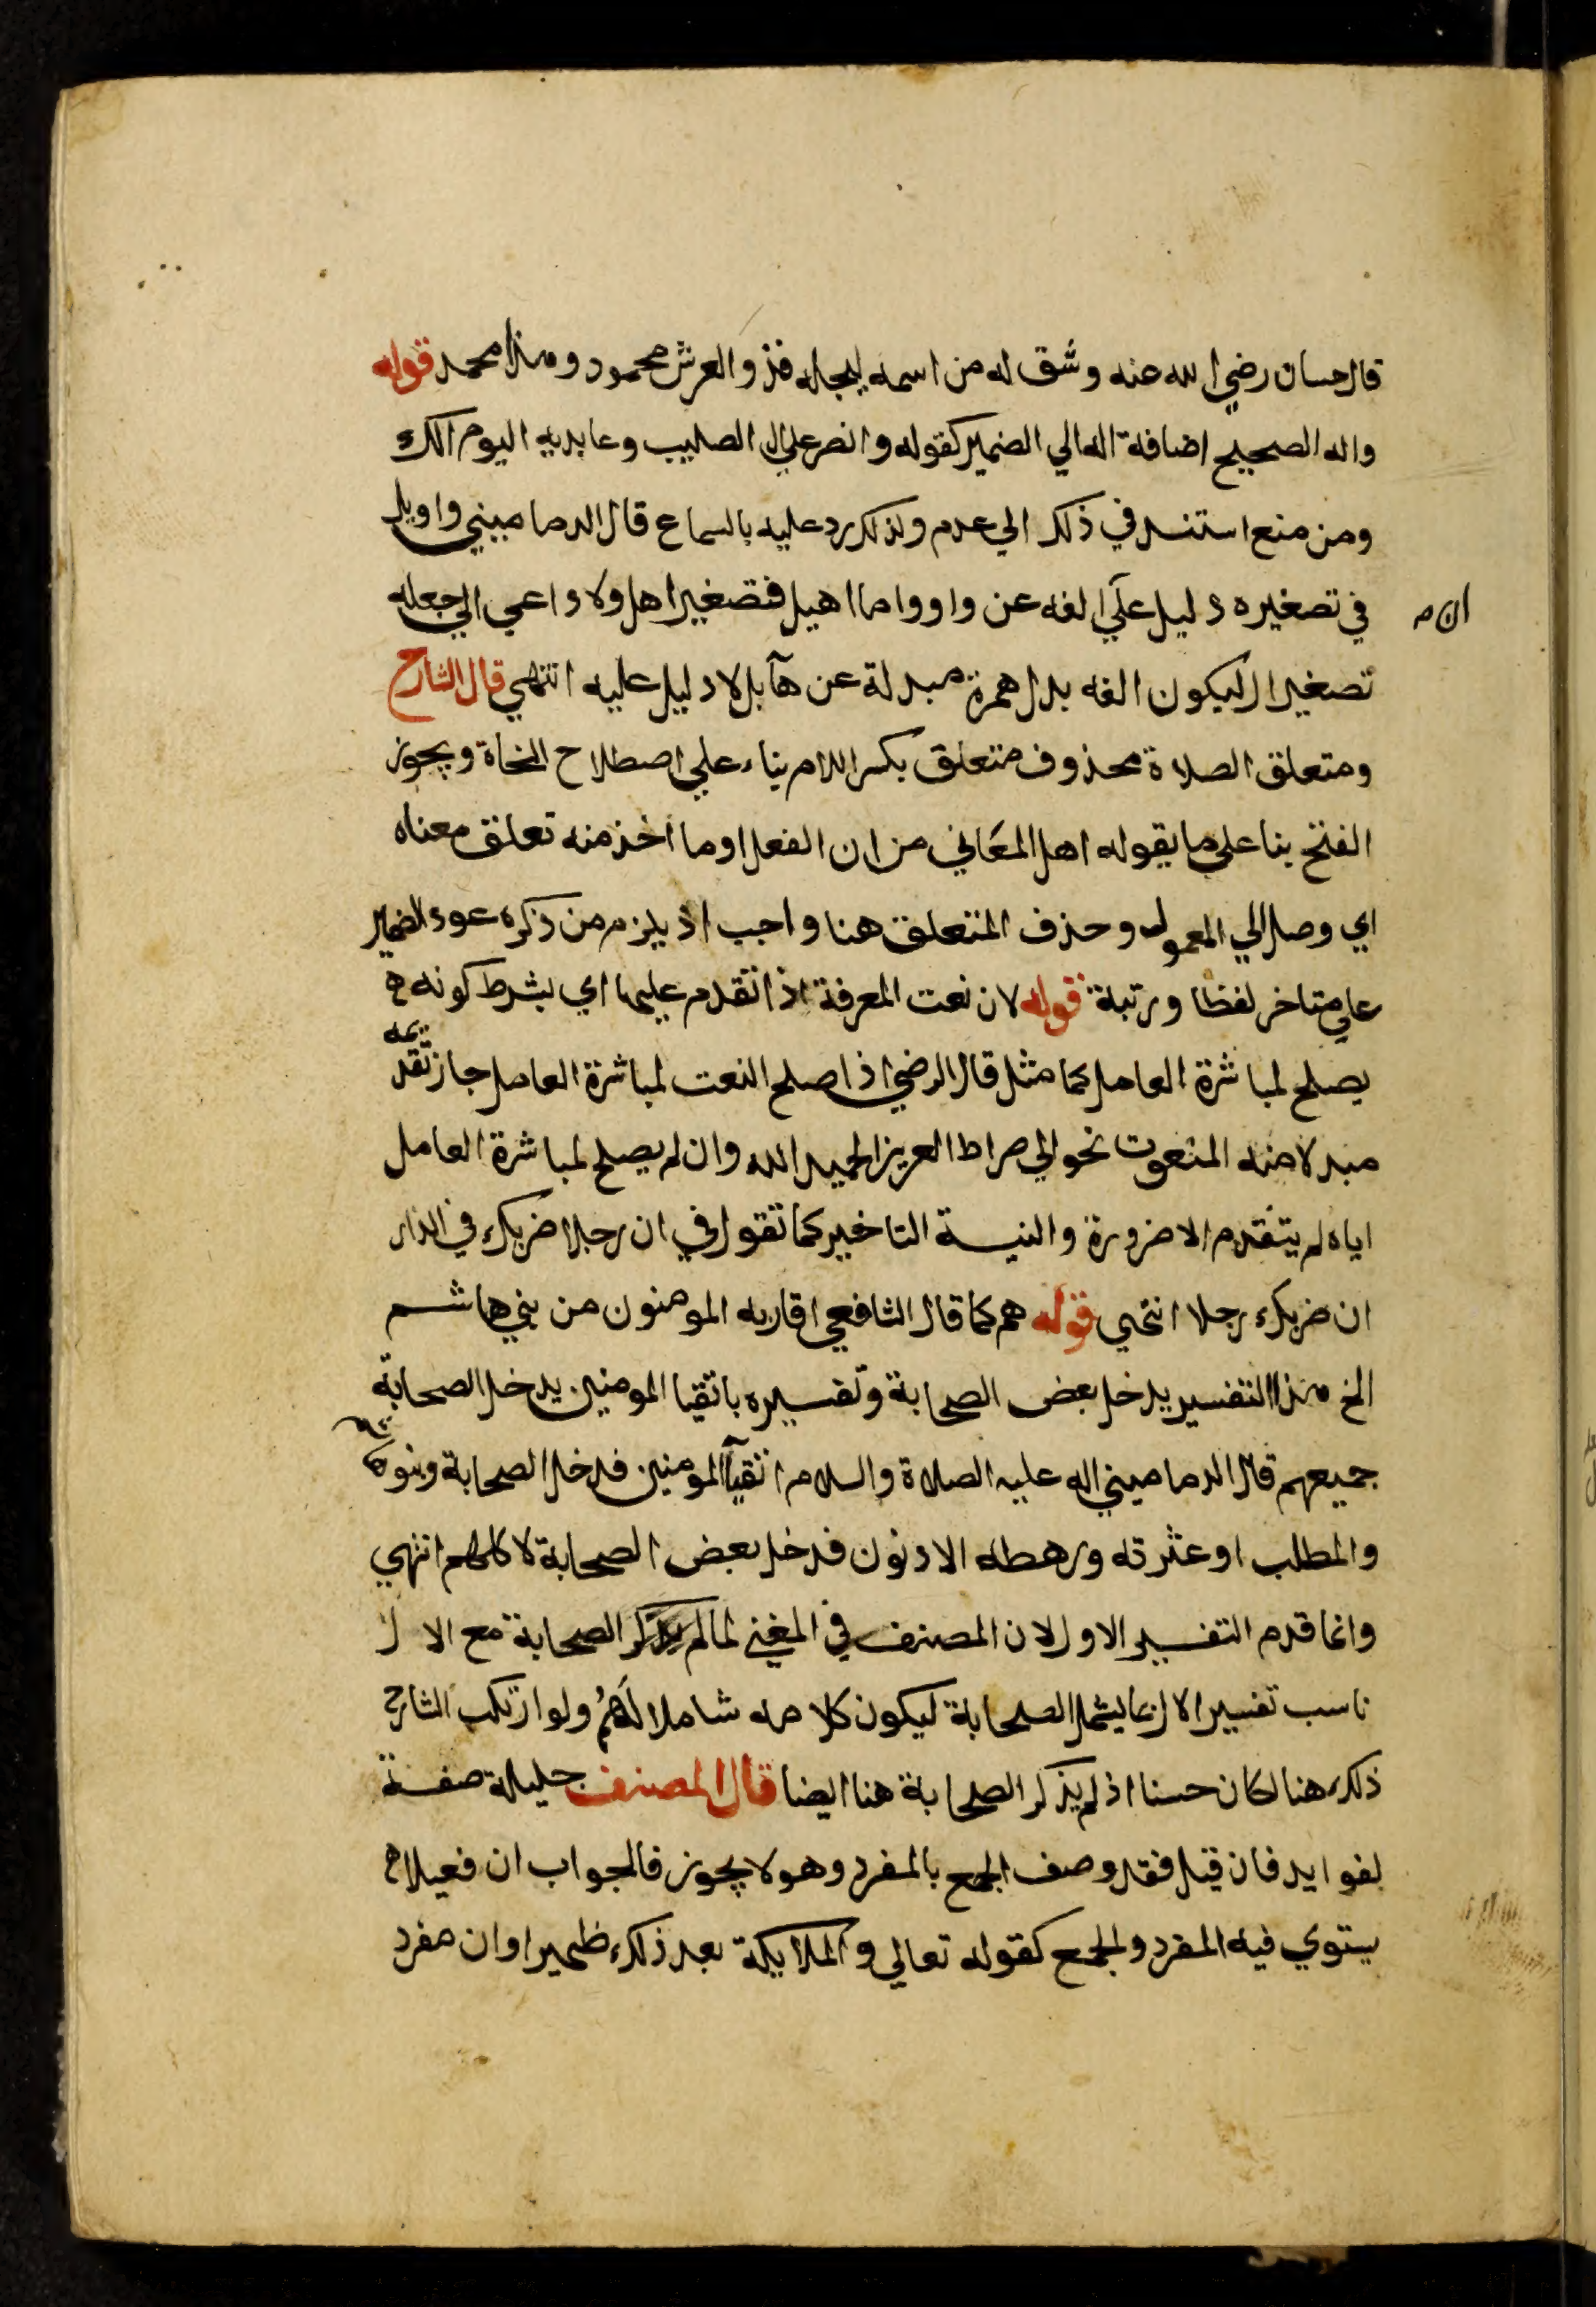 قال حسان رضي الله عنه وشق له من اسمه ليجله فذو العرش محمود وهذا محمد قوله
واله الصحيح اضافة اله الي الضمير كقوله وانصر علي ال الصليب وعابديه اليوم الك
ومن منع استند في ذلك الي عدم ولذلك رد عليه بالسماع قال الدماميني واويل
في تصغيره دليل علي الفه عن واو واما اهيل فتصغير اهل ولا داعي الي جعله
تصغير ال ليكون الفه بدل همزة مبدلة عن هآ بل لا دليل عليه انتهي قال الشارح
ومتعلق الصلاة محذوف متعلق بكسر اللام بناء علي اصطلاح النحاة ويجوز
الفتح بنا علي ما يقوله اهل المعاني من ان الفعل او ما اخذ منه تعلق معناه
اي وصل الي المعمول وحذف المتعلق هنا واجب اذ يلزم من ذكره عود الضمير
علي متاخر لفظا ورتبة قوله لان نعت المعرفة اذا تقدم عليها اي بشرط كونه
يصلح لمباشرة العامل كما مثل قال الرضي اذا صلح النعت لمباشرة العامل جاز تقديمه
مبدلا منه المنعوت نحو الي صراط العزيز الحميد الله وان لم يصلح لمباشرة العامل
اياه لم يتقدم الا ضرورة والنية التاخير كما تقول في ان رجلا ضربك في الدار
ان ضربك رجلا انتهي قوله هم كما قال الشافعي اقاربه المومنون من بني هاشم
الخ هذا التفسير يدخل بعض الصحابة وتفسيره باتقيا المومنين يدخل الصحابة
جميعهم قال الدماميني اله عليه الصلاة والسلام اتقيآ المومنين فدخل الصحابة وبنو هاشم
والمطلب او عثرته ورهطه الادنون فدخل بعض الصحابة لا كلهم انتهي
وانما قدم التفسير الاول لان المصنف في المغني لما لم يذكر الصحابة مع الال
ناسب تفسير الال بما يشمل الصحابة ليكون كلامه شاملا لهم ولو ارتكب الشارح
ذلك هنا لكان حسنا اذ لم يذكر الصحابة هنا ايضا قال المصنف جليلة صفة
لفوايد فان قيل فقد وصف الجمع بالمفرد وهو لا يجوز فالجواب ان فعيلا
يستوي فيه المفرد والجمع كقوله تعالي والملايكة بعد ذلك ظهيرا وان مفرد